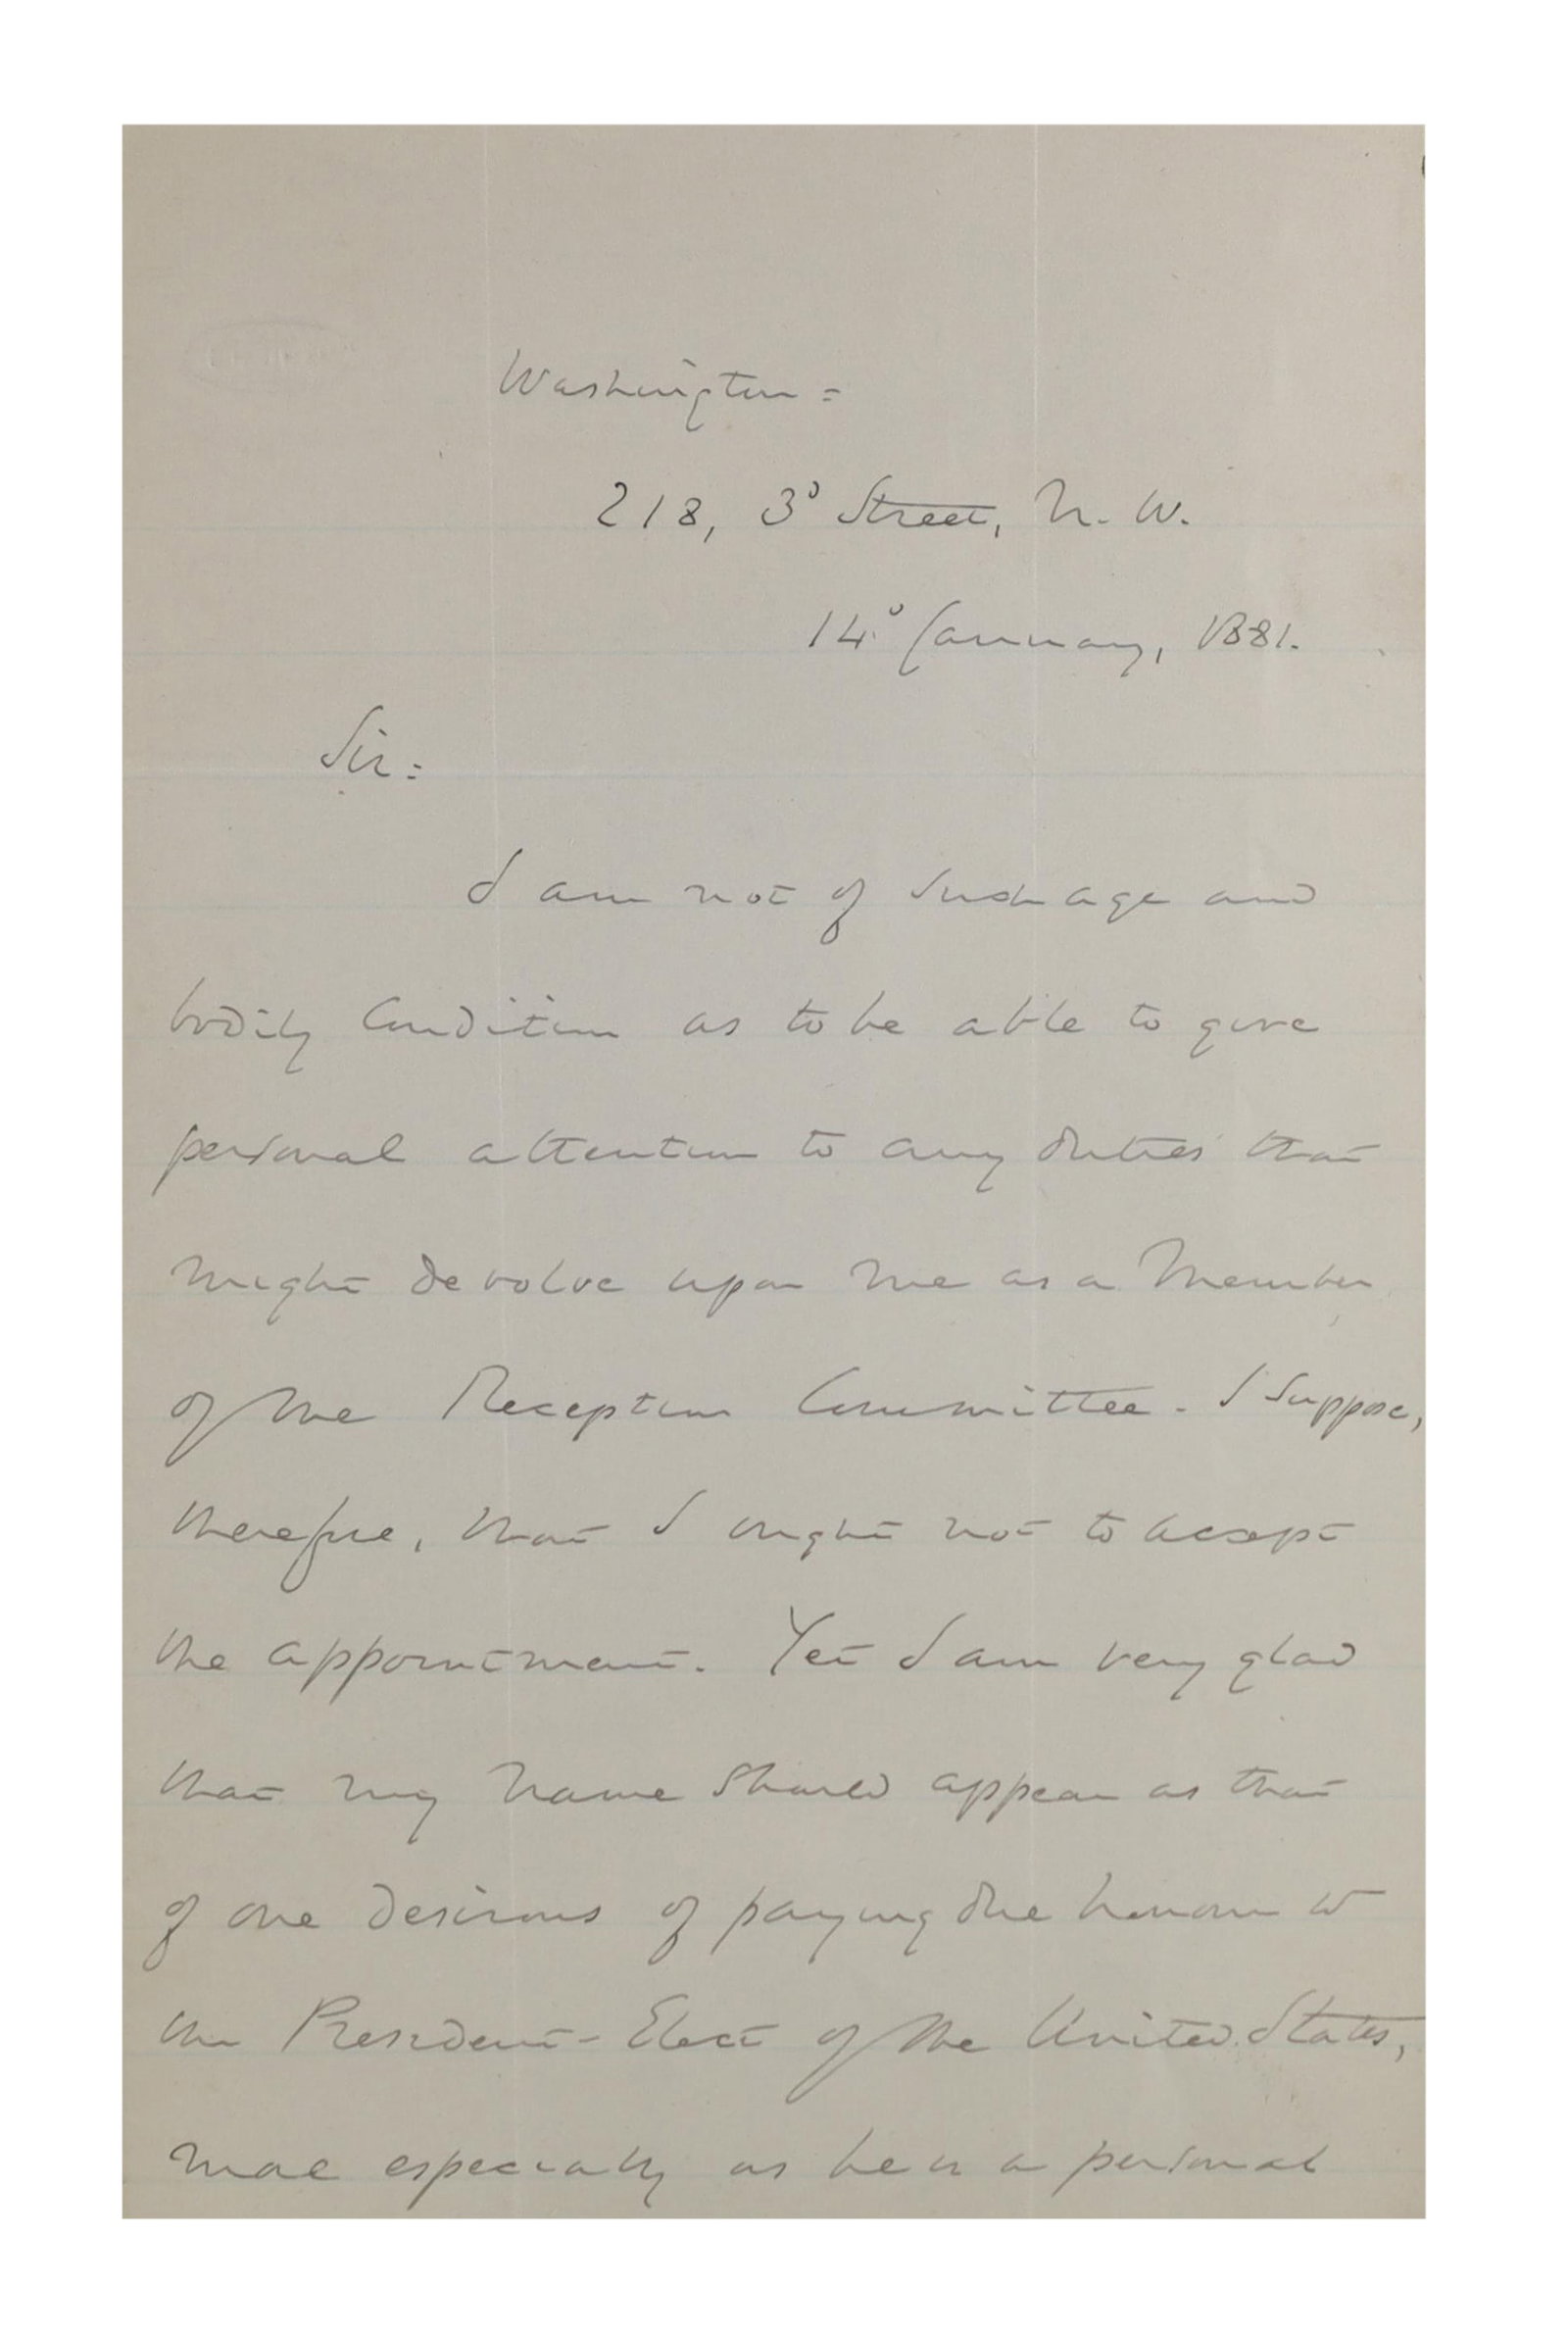 Washington =
218, 3d Street, N. W.
14o January, 1881.
Sir:
I am not of such age and
bodily Condition as to be able to give
personal attention to any duties that
might devolve upon me as a Member
of the Reception Committee. I suppose,
therefore, that I ought not to accept
the appointment. Yet I am very glad
that my name should appear as that
of one desirous of paying due honour to
the President-Elect of the United States,
more especially as he is a personal